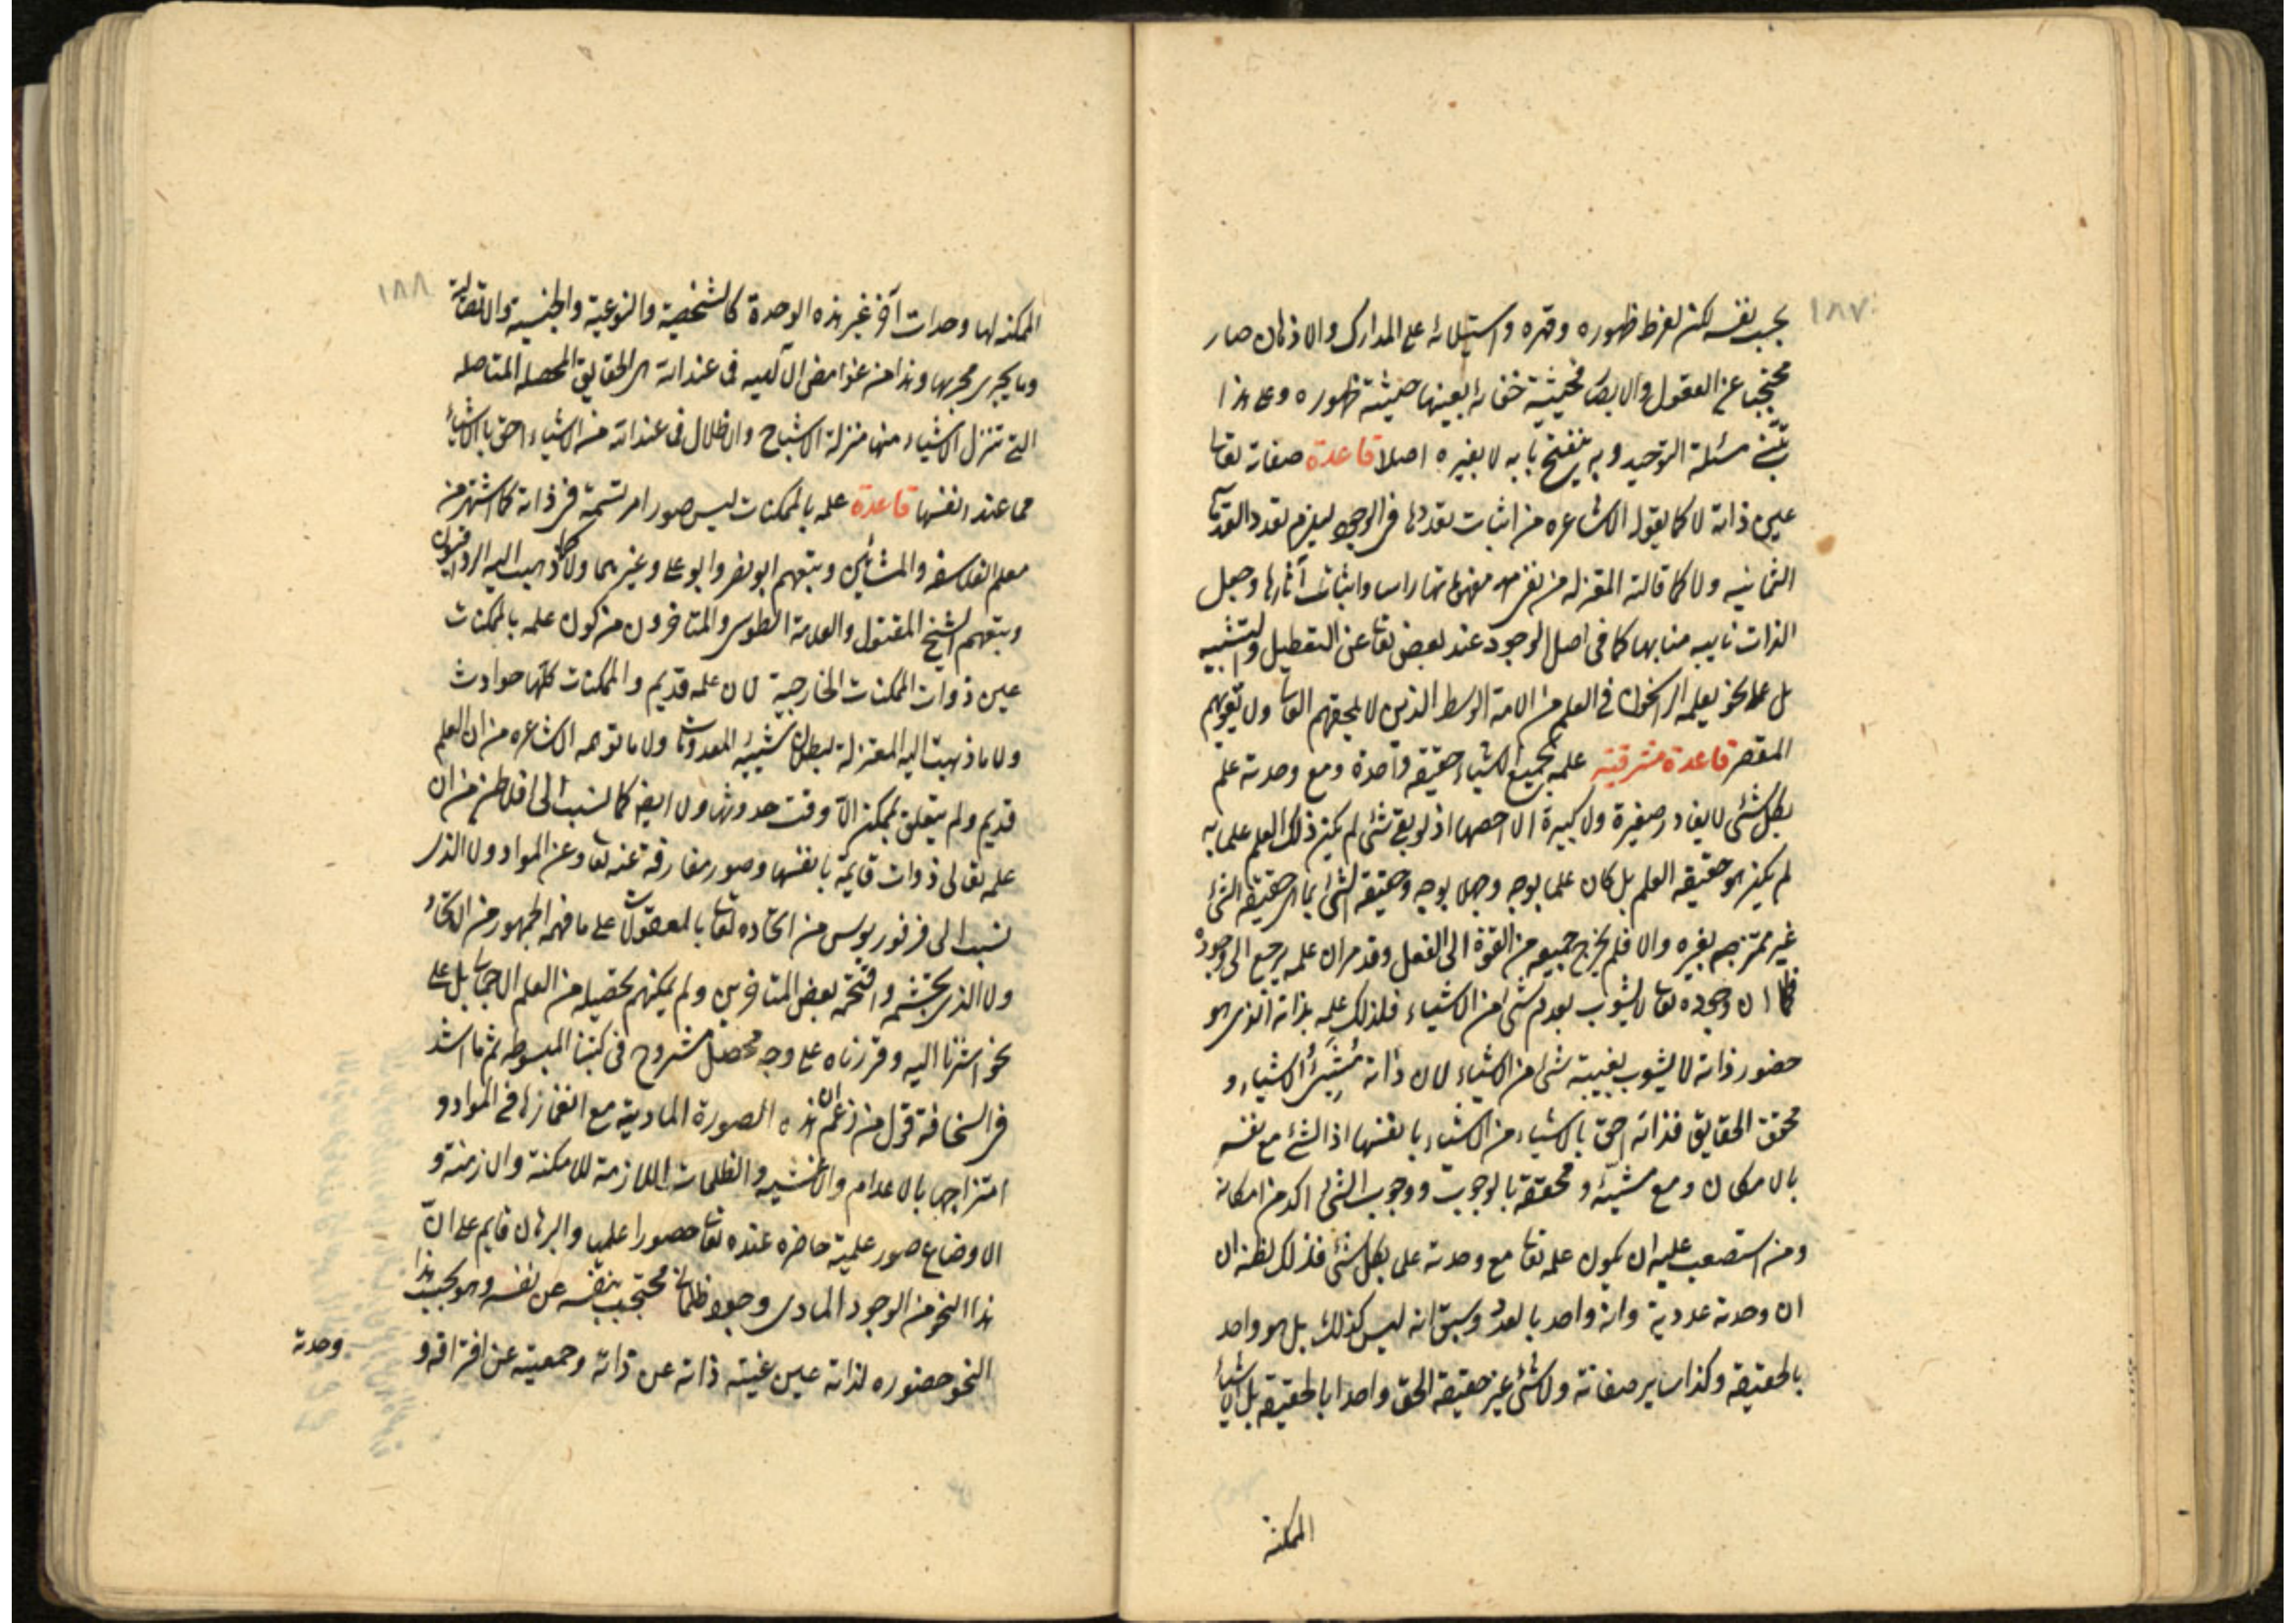 ١٨٧
بحسب نفسه لكن لفرط ظهوره وقهره واستيلائه على المدارك والاذهان صار
محتجبا عن العقول والابصار فحيثية خفائه بعينها حيثية ظهوره وعلى هذا
يبتنى مسئلة التوحيد وبه ينفتح بابه لا بغيره اصلا قاعدة صفاته تعا
عين ذاته لا كما يقوله الاشاعره من اثبات تعددها فى الوجود ليلزم تعدد القدماء
الثمانيه ولا كما قالته المعتزله من نفى مفهوماتها راسا واثبات آثارها وجعل
الذات نايبه منابها كما فى اصل الوجود عند بعض تعا عن التعطيل والتشبيه
بل على نحو يعلمه الراسخون فى العلم من الامة الوسط الذين لا يلحقهم الغالى ولا يفوتهم
المقصر قاعدة مشرقية علمه بجميع الاشياء حقيقه واحدة ومع وحدته علم
بكل شئ لا يغادر صغيرة ولا كبيرة الا احصها اذ لو بقى شئ لم يكن ذلك العلم علما به
لم يكن هو حقيقه العلم بل كان علما بوجه وجهلا بوجه وحقيقه الشئ بما هى حقيقه الشئ
غير ممتزجه بغيره والا فلم يخرج جميعه من القوة الى الفعل وقد مر ان علمه يرجع الى وجوده
فكما ان وجوده تعا لا يشوب بعدم شئ من الاشياء فلذلك علمه بذاته الذى هو
حضور ذاته لا يشوب بغيبته شئ من الاشياء لان ذاته مشيئ الاشياء و
محقق الحقايق فذاته احق بالاشياء من الاشياء بانفسها اذ الشئ مع نفسه
بالامكان ومع مشيئه ومحققه بالوجوب ووجوب الشئ اكد من امكانه
ومن استصعب عليه ان يكون علمه تعا مع وحدته علم بكل شئ فذلك لظنه ان
ان وحدته عددية وانه واحد بالعدد وسبق انه ليس كذلك بل هو واحد
بالحقيقه وكذا ساير صفاته ولا شئ غير حقيقه الحق واحدا بالحقيقه بل الاشياء
الممكنه
١٨٨
الممكنه لها وحدات آخر غير هذه الوحدة كالشخصية والنوعية والجنسية والاتصاليه
وما يجرى مجريها وهذا من غوامض الالهيه فى عنداته هى الحقايق المحصله المتاصله
التى تنزل الاشياء منها منزلة الاشباح والاظلال فى عنداته من الاشياء احق بالاشياء
مما عند انفسها قاعدة علمه بالممكنات ليس صورا مرتسمة فى ذاته كما اشتهر من
معلم الفلاسفه والمشائين وتبعهم ابو نصر وابو على وغيرهما ولا كما ذهب اليه الرواقيون
وتبعهم الشيخ المقتول والعلامة الطوسى والمتاخرون من كون علمه بالممكنات
عين ذوات الممكنات الخارجية لان علمه قديم والممكنات كلها حوادث
ولا ما ذهبت اليه المعتزلة لبطلان شيئيه المعدومات ولا ما توهمه الاشاعره من ان العلم
قديم ولم يتعلق بممكن الا وقت حدوثها ولا ايضه كما نسب الى افلاطن من ان
علمه تعالى ذوات قايمة بانفسها وصور مفارقة عنه تعا وعن المواد ولا الذى
نسب الى فرفوريوس من اتحاده تعا بالمعقولات على ما فهمه الجمهور من الاتحاد
ولا الذى تجشمه واقتحمه بعض المتاخرين ولم يمكنهم تحصيله من العلم الاجمالى بل على
نحو اشرنا اليه وقررناه على وجه محصل مشروح فى كتبنا المبسوطه ثم ما اشد
فى السخافة قول من زعم ان هذه الصورة المادية مع انغمازها فى المواد و
امتزاجها بالاعدام والاغشيه والظلمات اللازمة للامكنة والازمنة و
الاوضاع صور علمية حاضره عنده تعا حضورا علميا والبرهان قايم على ان
هذا النحو من الوجود المادى وجود ظلمانى محتجب بنفسه عن نفسه وهو بحسب هذا
النحو حضوره لذاته عين غيبته ذاته عن ذاته وجمعيته عن افتراقه و
وحدته